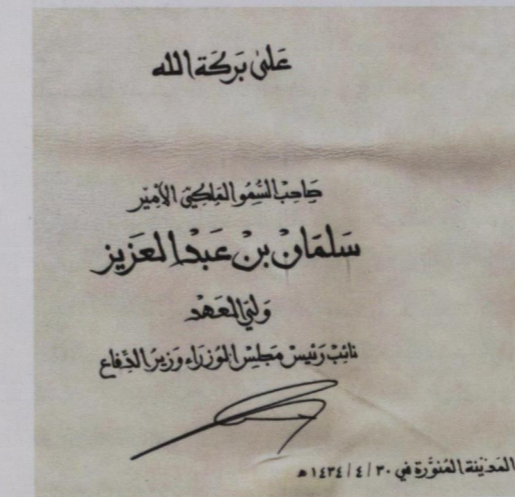 عَلىٰ بَركَة الله
صَاحِبُ السُّمُو المَلكيّ الأمِيْر
سَلمَان بْن عَبْدالعَزيز
وَليّ العَهْد
نائِبْ رَئِيسْ مَجلِسْ الوُزرَاء وَزيرُ الدِّفَاع
المَدِيْنَة المُنوَّرة في ٣٠ / ٤ / ١٤٣٤ هـ